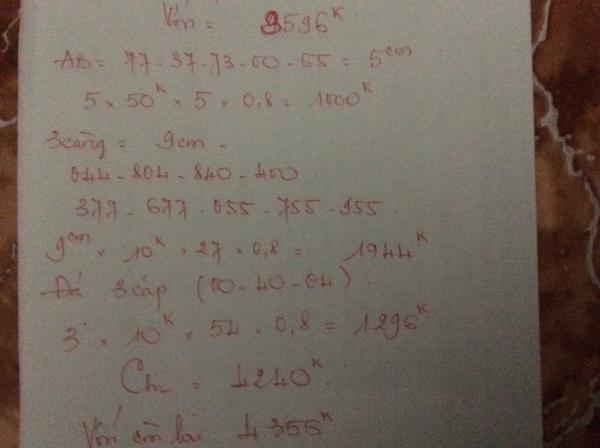 Vốn = 8596ᴷ
AB = 77-37-73-00-55 = 5ᶜᵐ
5 x 50ᴷ x 5 x 0,8 = 1000ᴷ
3 càng = 9cm -
044-804-840-400
377-677-055-755-955.
9ᶜᵐ x 10ᴷ x 27 x 0,8 = 1944ᴷ
Đá 3 cặp (00-40-04)
3 x 10ᴷ x 54 x 0,8 = 1296ᴷ
Chi = 4240ᴷ.
Vốn còn lại 4.356ᴷ